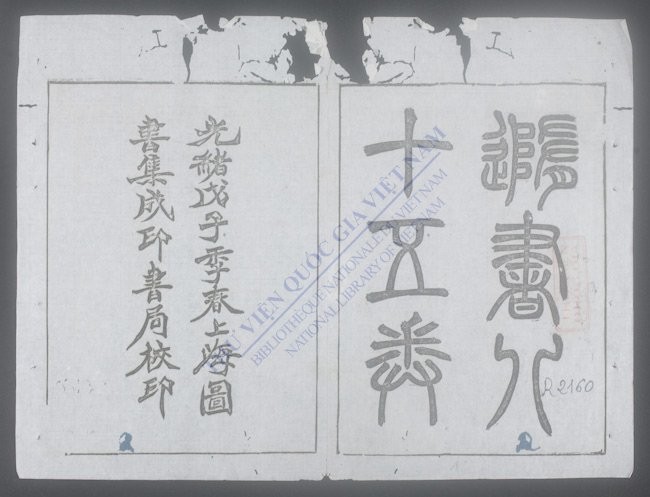 隋書八
十五卷
光緒戊子季春上海圖
書集成印書局校印
R 2160
THƯ VIỆN QUỐC GIA VIỆT NAM
BIBLIOTHÈQUE NATIONALE DU VIETNAM
NATIONAL LIBRARY OF VIETNAM